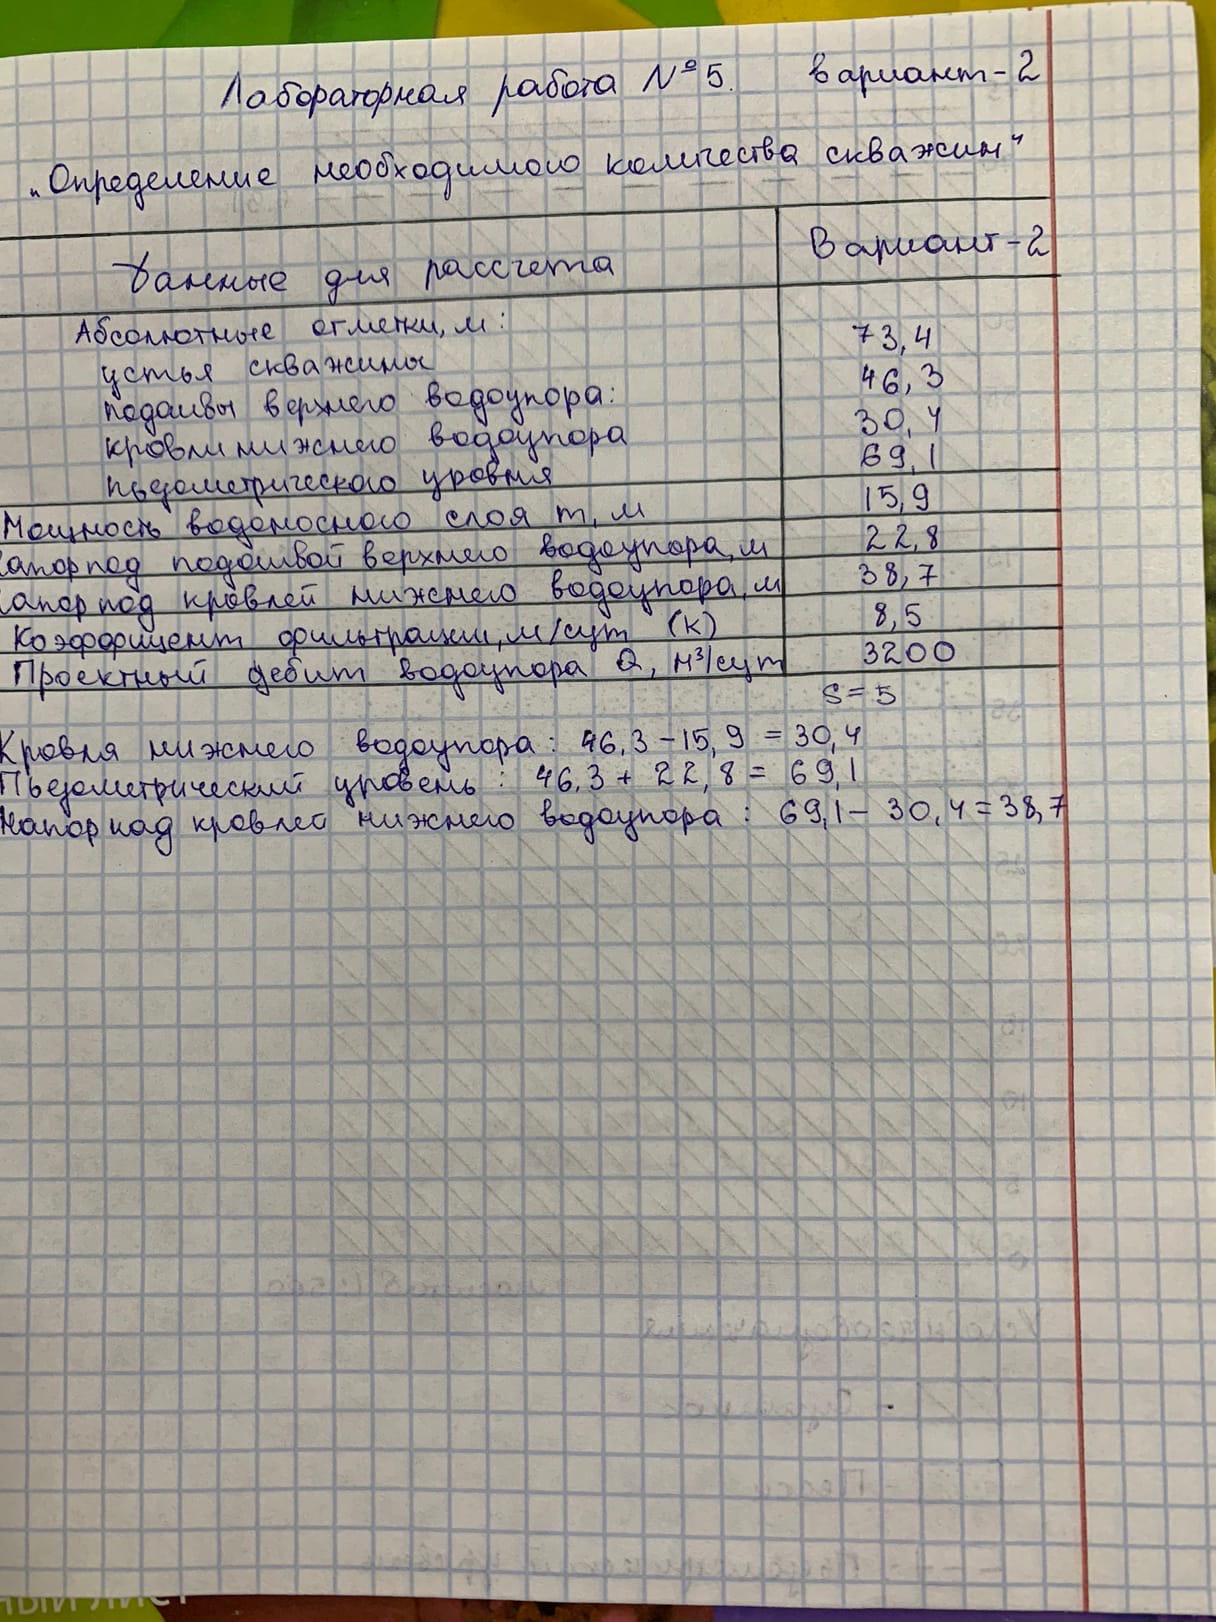 Лабораторная работа № 5. вариант-2
„Определение необходимого количества скважин"
Данные для рассчета Вариант-2
Абсолютные отметки, м:
устья скважины 73,4
подошвы верхнего водоупора: 46,3
кровли нижнего водоупора 30,4
пьезометрического уровня 69,1
Мощность водоносного слоя m, м 15,9
апор под подошвой верхнего водоупора, м 22,8
апор под кровлей нижнего водоупора, м 38,7
Коэффициент фильтрации, м/сут (К) 8,5
Проектный дебит водоупора Q, м³/сут 3200
S=5
Кровля нижнего водоупора: 46,3-15,9=30,4
Пьезометрический уровень: 46,3+22,8=69,1
Напор над кровлей нижнего водоупора: 69,1-30,4=38,7